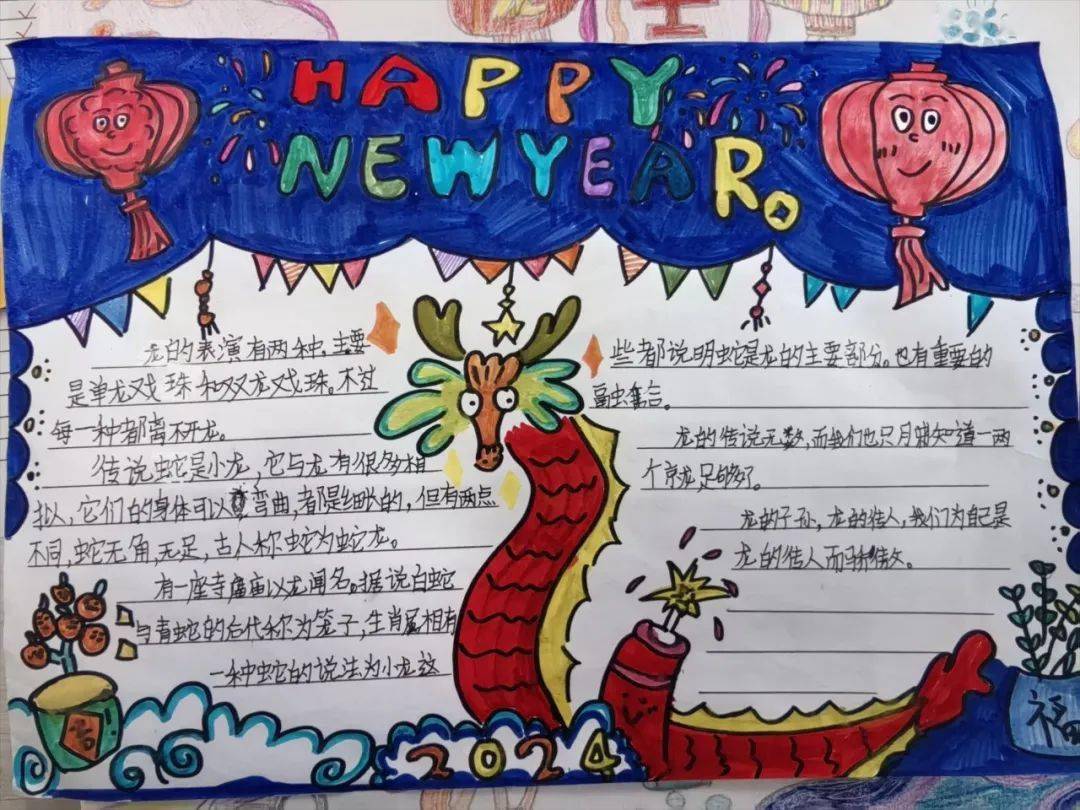 HAPPY
NEWYEAR。
龙的表演有两种,主要
是单龙戏珠和双龙戏珠。不过
每一种都离不开龙。
传说蛇是小龙,它与龙有很多相
拟,它们的身体可以弯曲,都是细长的,但有两点
不同,蛇无角,无足,古人称蛇为蛇龙。
有一座寺庙以龙闻名。据说白蛇
与青蛇的后代称为笼子,生肖属相有
一种蛇的说法为小龙这
些都说明蛇是龙的主要部分。也有重要的
集合。
龙的传说无数,而我们也只用知道一两
个就足够了。
龙的子孙,龙的传人,我们为自己是
龙的传人而骄傲。
吉
福
2024